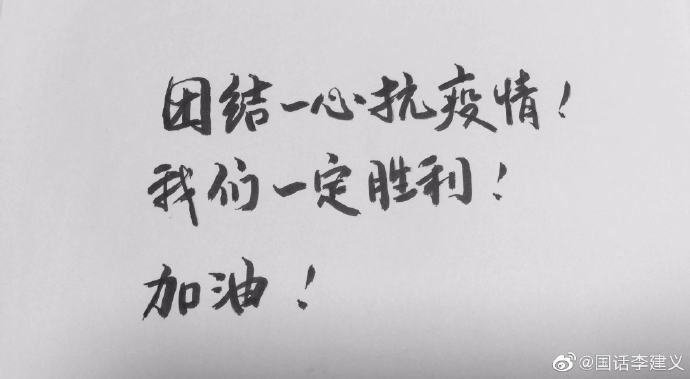 团结一心抗疫情！
我们一定胜利！
加油！
@国话李建义